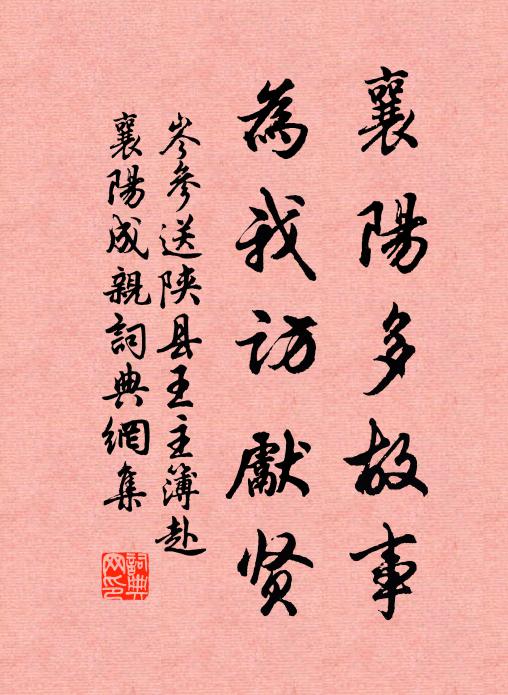 襄陽多故事
為我訪獻贤
岑參送陕县王主簿赴
襄陽成親詞典網集
詞典
网印